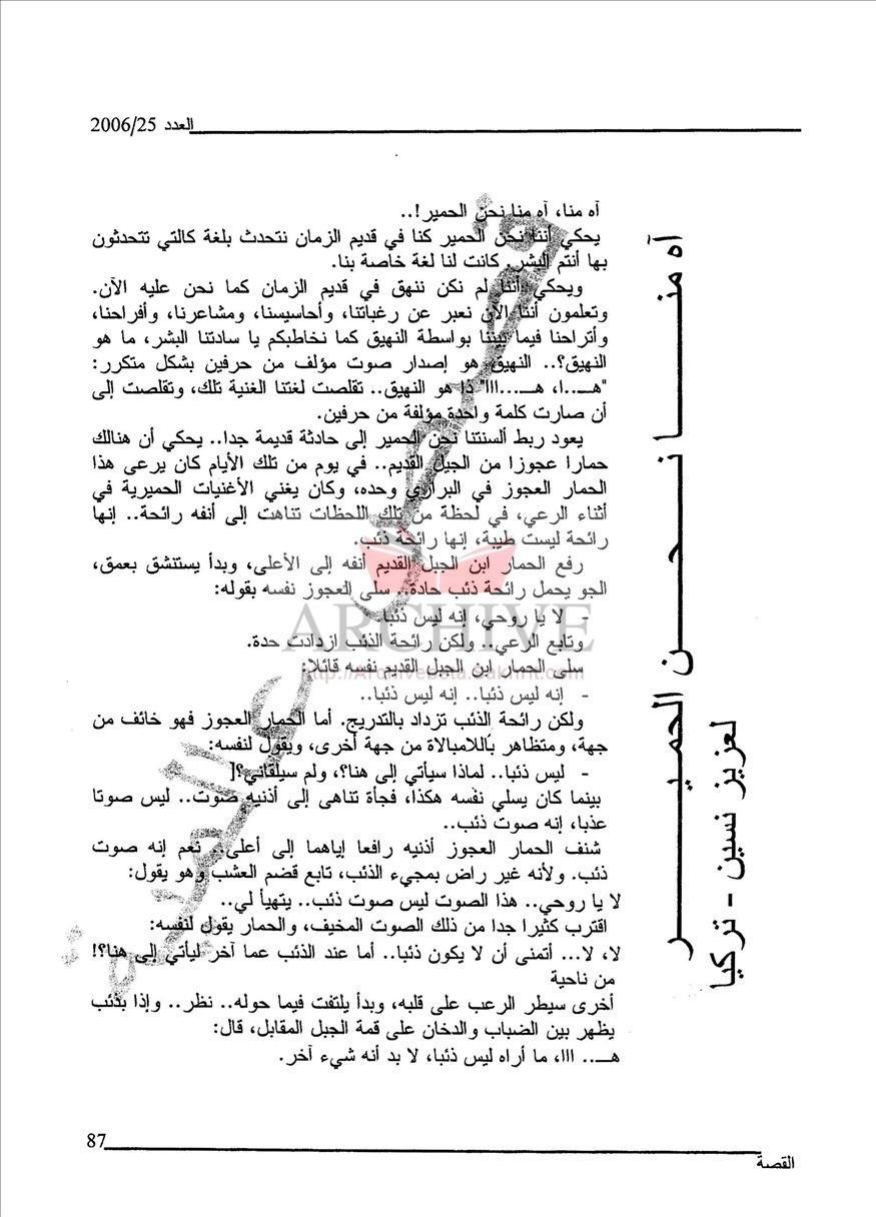 العدد 2006/25
آه منـــــا نـــحـــن الحميـــــر
لعزيز نسين - تركيا
آه منا، آه منا نحن الحمير!..
يحكي أننا نحن الحمير كنا في قديم الزمان نتحدث بلغة كالتي تتحدثون
بها أنتم البشر. كانت لنا لغة خاصة بنا.
ويحكي أننا لم نكن ننهق في قديم الزمان كما نحن عليه الآن.
وتعلمون أننا الآن نعبر عن رغباتنا، وأحاسيسنا، ومشاعرنا، وأفراحنا،
وأتراحنا فيما بيننا بواسطة النهيق كما نخاطبكم يا سادتنا البشر، ما هو
النهيق؟.. النهيق هو إصدار صوت مؤلف من حرفين بشكل متكرر:
"هـــ...ا، هـــ...ااا" ذا هو النهيق.. تقلصت لغتنا الغنية تلك، وتقلصت إلى
أن صارت كلمة واحدة مؤلفة من حرفين.
يعود ربط ألسنتنا نحن الحمير إلى حادثة قديمة جدا.. يحكي أن هنالك
حمارا عجوزا من الجيل القديم.. في يوم من تلك الأيام كان يرعى هذا
الحمار العجوز في البراري وحده، وكان يغني الأغنيات الحميرية في
أثناء الرعي، في لحظة من تلك اللحظات تناهت إلى أنفه رائحة.. إنها
رائحة ليست طيبة، إنها رائحة ذئب.
رفع الحمار ابن الجيل القديم أنفه إلى الأعلى، وبدأ يستنشق بعمق،
الجو يحمل رائحة ذئب حادة.. سلى العجوز نفسه بقوله:
- لا يا روحي، إنه ليس ذئبا.
وتابع الرعي.. ولكن رائحة الذئب ازدادت حدة.
سلى الحمار ابن الجيل القديم نفسه قائلا:
- إنه ليس ذئبا.. إنه ليس ذئبا..
ولكن رائحة الذئب تزداد بالتدريج. أما الحمار العجوز فهو خائف من
جهة، ومتظاهر باللامبالاة من جهة أخرى، ويقول لنفسه:
- ليس ذئبا.. لماذا سيأتي إلى هنا؟، ولم سيلقاني؟[
بينما كان يسلي نفسه هكذا، فجأة تناهى إلى أذنيه صوت.. ليس صوتا
عذبا، إنه صوت ذئب..
شنف الحمار العجوز أذنيه رافعا إياهما إلى أعلى.. نعم إنه صوت
ذئب. ولأنه غير راض بمجيء الذئب، تابع قضم العشب وهو يقول:
لا يا روحي.. هذا الصوت ليس صوت ذئب.. يتهيأ لي..
اقترب كثيرا جدا من ذلك الصوت المخيف، والحمار يقول لنفسه:
لا، لا... أتمنى أن لا يكون ذئبا.. أما عند الذئب عما آخر ليأتي إلى هنا؟!
من ناحية
أخرى سيطر الرعب على قلبه، وبدأ يلتفت فيما حوله.. نظر.. وإذا بذئب
يظهر بين الضباب والدخان على قمة الجبل المقابل، قال:
هـــ.. ااا، ما أراه ليس ذئبا، لا بد أنه شيء آخر.
ARCHIVE
87
القصة